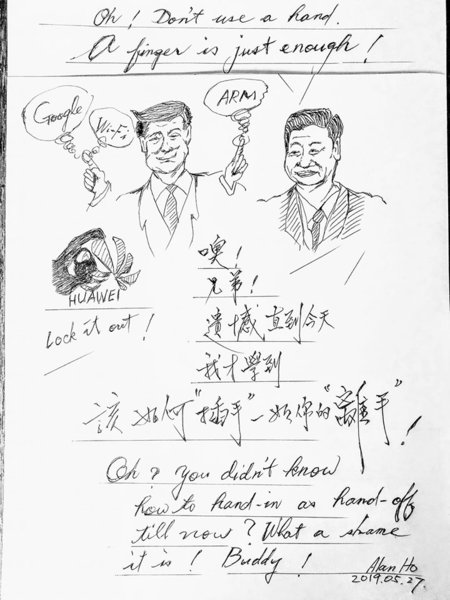 Oh! Don't use a hand.
A finger is just enough!
Google
Wi-Fi
ARM
HUAWEI
Lock it out!
噢!
兄弟!
遺憾直到今天
我才學到
該如何"插手"一如你的"離手"!
Oh? you didn't know
how to hand-in as hand-off
till now? What a shame
it is! Buddy!
Alan Ho
2019.05.27.